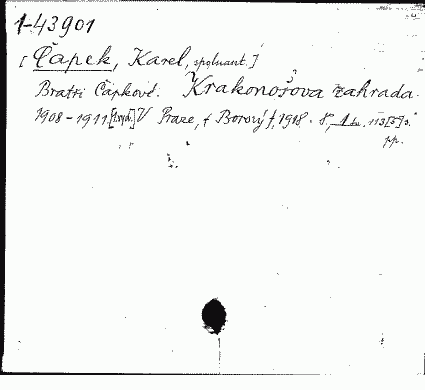 1-43901
[Čapek, Karel, spoluaut.]
Bratři Čapkové. Krakonošova zahrada.
1908-1911. V Praze, F. Borový, 1918. 8°, 113 [3] s.
pp.